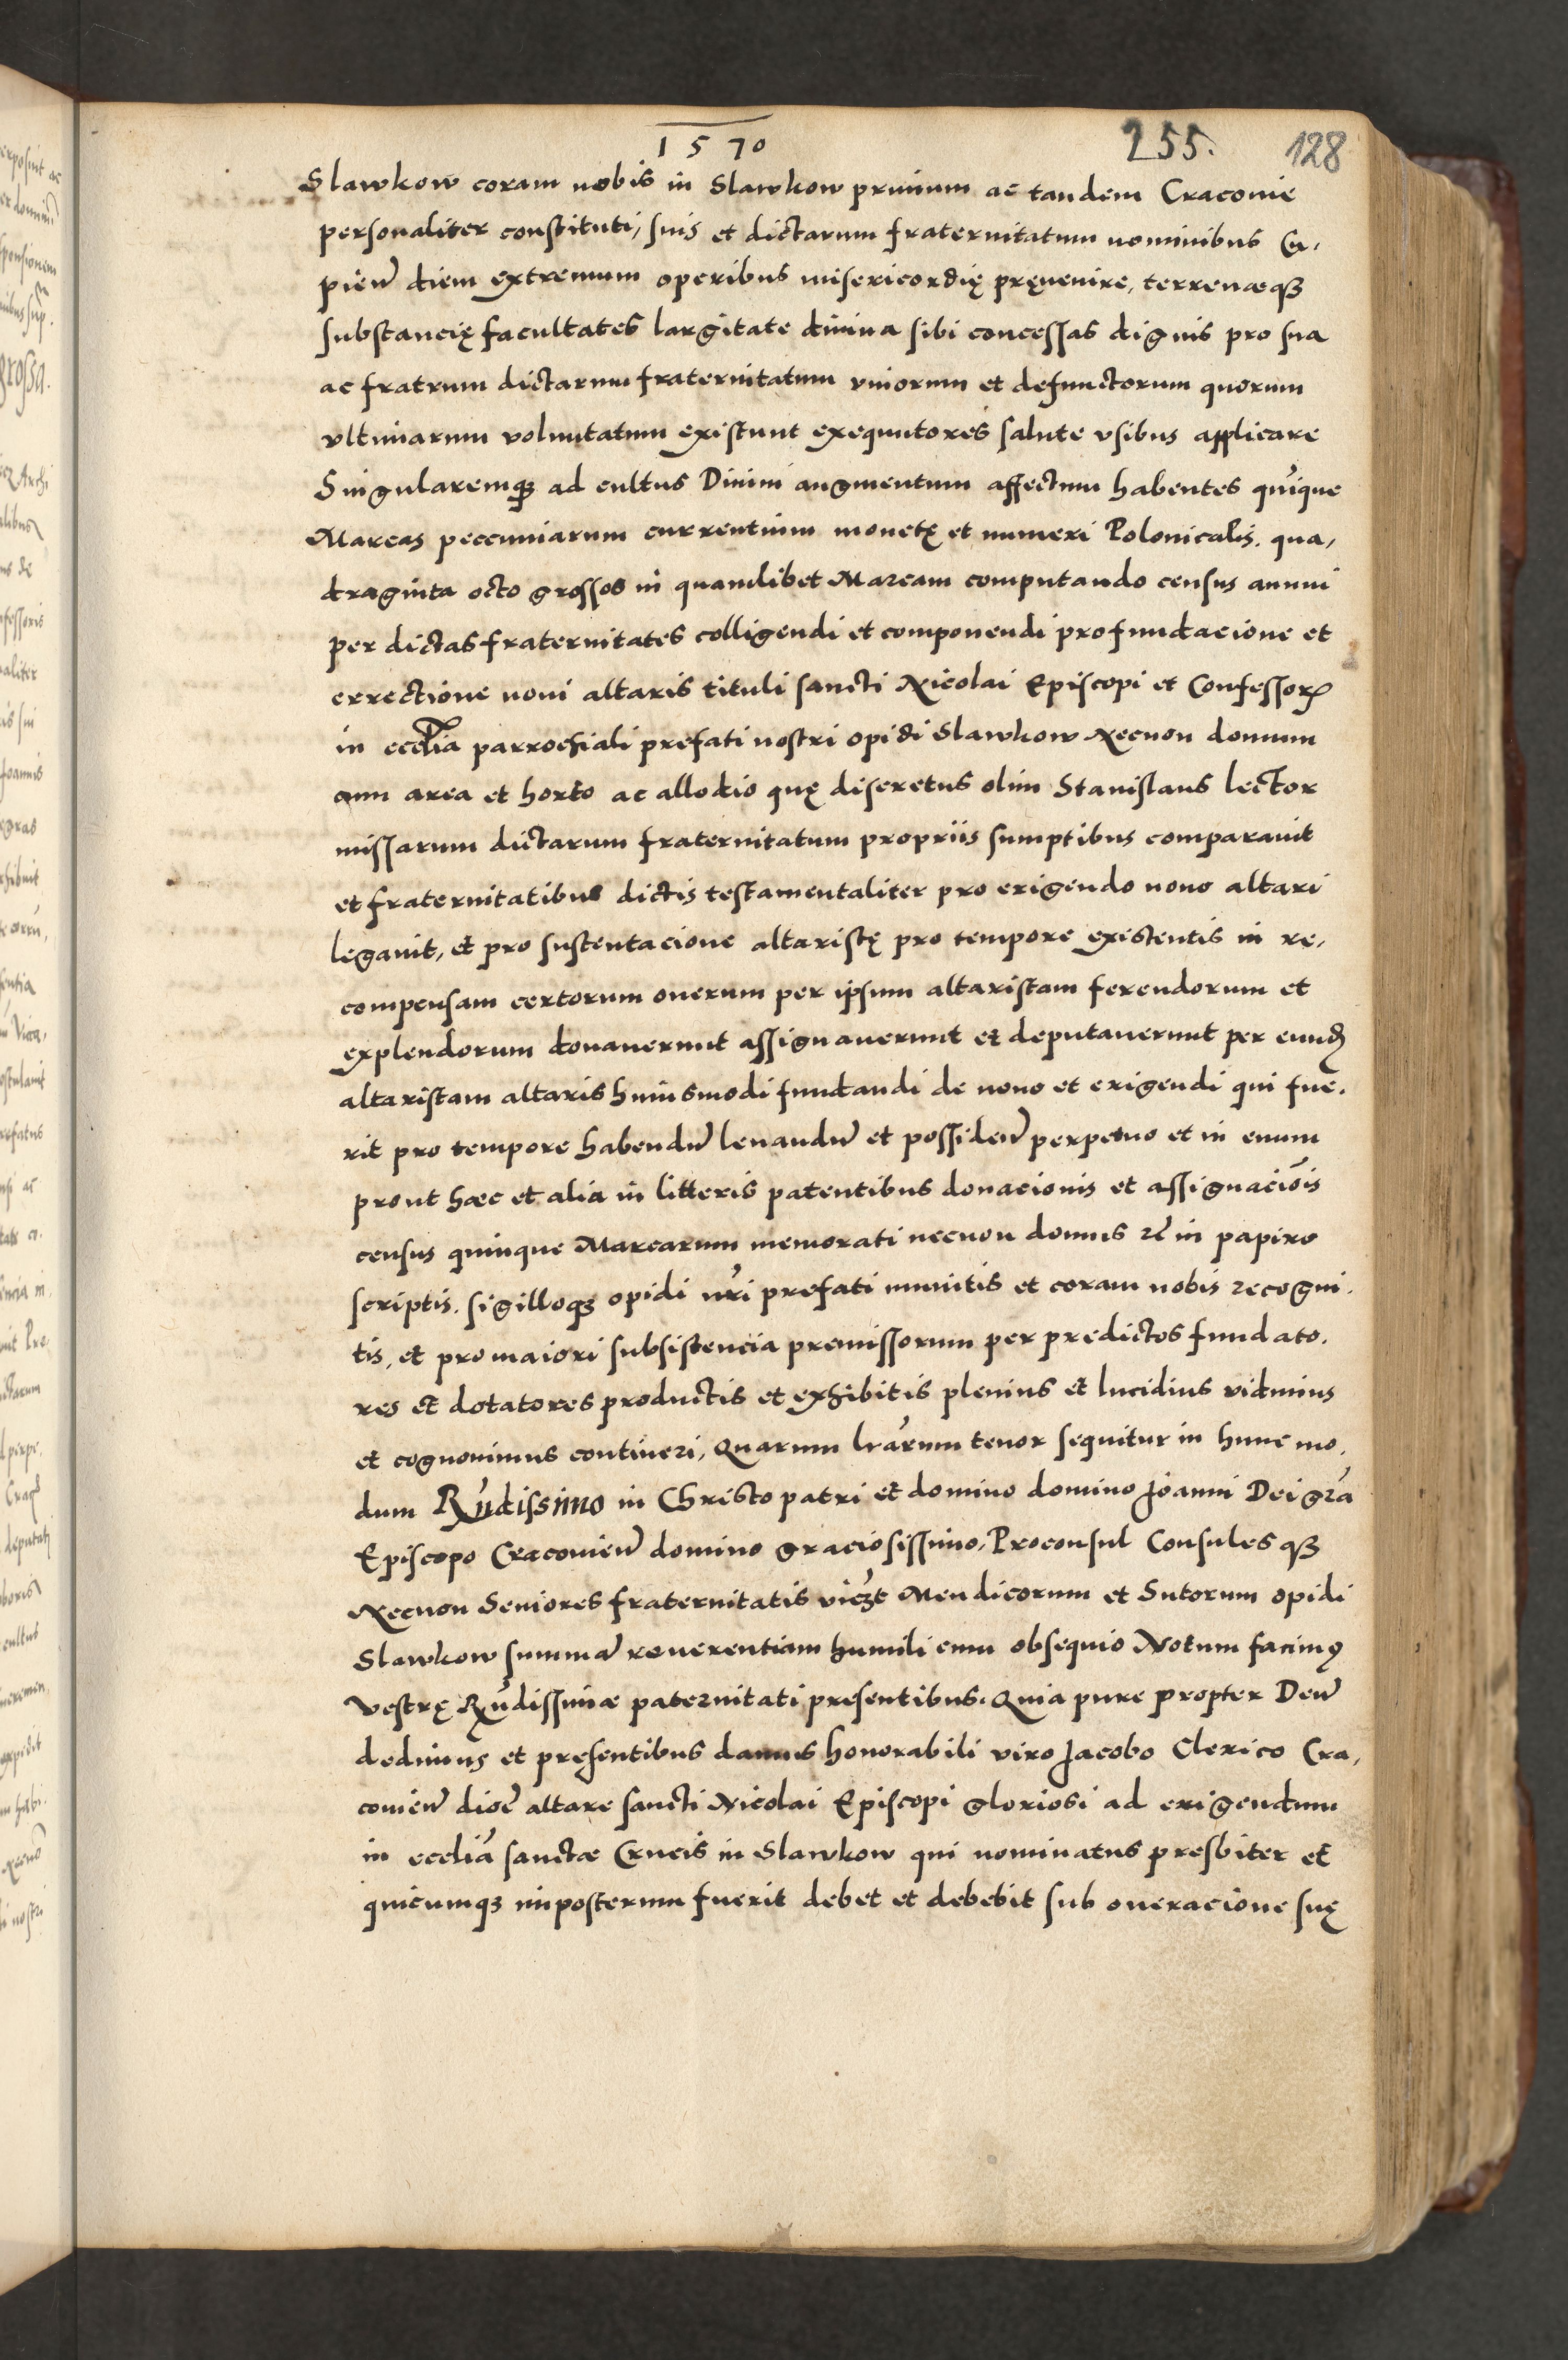 1570 255. 128
Slawkow coram nobis in Slawkow primum ac tandem Craconie
personaliter constituti, suis et dictarum fraternitatum nominibus Cu,
pien̄ diem extremum operibus misericordię pręvenire, terrenæq₃
substancię facultates largitate divina sibi concessas dignis pro sua
ac fratrum dictarum fraternitatum viuorum et defunctorum quorum
vltimarum voluntatum existunt exequutores salute vsibus applicare
Singularemq₃ ad cultus Diuini augmentum affectum habentes quīque
Marcas peccuniarum currentium monetę et numeri Polonicalis. qua,
draginta octo grossos in quamlibet Marcam computando census annui
per dictas fraternitates colligendi et componendi pro fundacione et
errectione noui altaris tituli sancti Nicolai Episcopi et Confessoris
in ecclīa parrochiali prefati nostri opidi Slawkow Necnon domum
cum area et horto ac allodio quę discretus olim Stanislaus lector
missarum dictarum fraternitatum propriis sumptibus comparauit
et fraternitatibus dictis testamentaliter pro erigendo nouo altari
legauit, et pro sustentacione altaristę pro tempore existentis in re,
compensam certorum onerum per ipsum altaristam ferendorum et
explendorum donauerunt assignauerunt et deputauerunt per eund̄
altaristam altaris huiusmodi fundandi de nouo et erigendi qui fue,
rit pro tempore habendū leuandū et possiden̄ perpetuo et in euum
prout hæc et alia in litteris patentibus donacionis et assignaciōis
census quinque Marcarum memorati necnon domus rc̄ in papiro
scriptis. sigilloq₃ opidi nrī prefati munitis et coram nobis recogni,
tis, et pro maiori subsistencia premissorum per predictos fundato,
res et dotatores productis et exhibitis plenius et lucidius vidimus
et cognouimus contineri, Quarum lrārum tenor sequitur in hunc mo,
dum Rn̄dissimo in Christo patri et domino domino Joanni Dei grā
Episcopo Cracouien̄ domino graciosissimo, Proconsul Consulesq₃
Necnon Seniores fraternitatis vicz̄t Mendicorum et Sutorum opidi
Slawkow summā reuerentiam humili cum obsequio Notum facimꝰ
vestrę Rn̄dissimæ paternitati presentibus. Quia pure propter Deū
dedimus et presentibus damus honorabili viro Jacobo Clerico Cra,
couien̄ dioc̄ altare sancti Nicolai Episcopi gloriosi ad erigendum
in eccliā sanctæ Crucis in Slawkow qui nominatus presbiter et
quicumq₃ imposterum fuerit debet et debebit sub oneracione suę